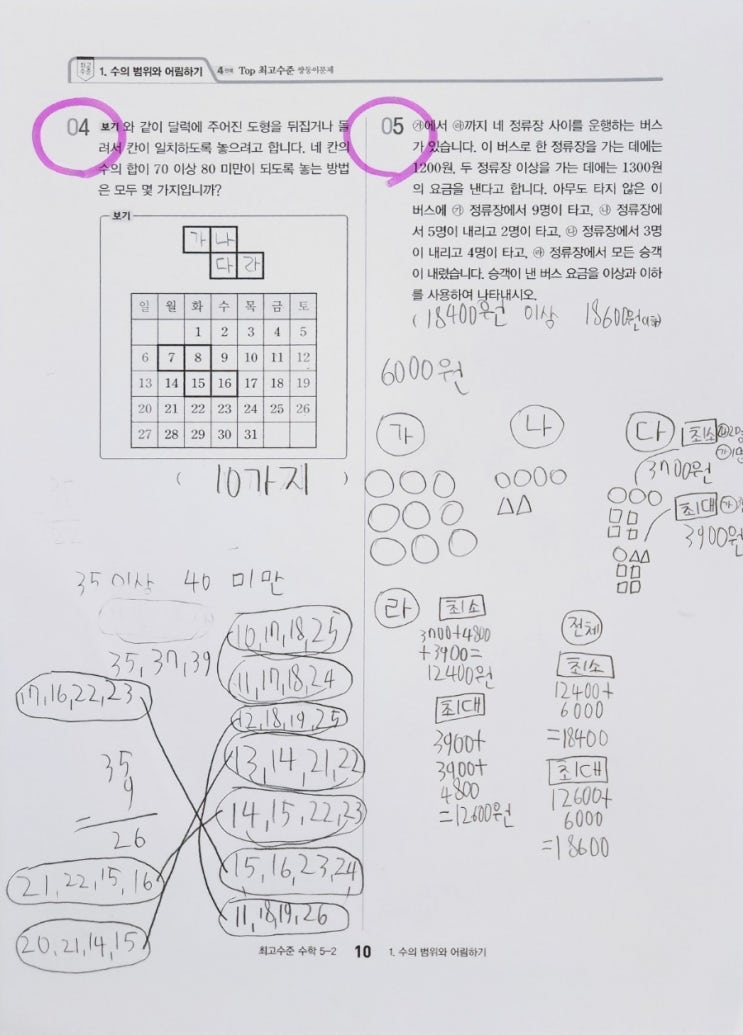 1. 수의 범위와 어림하기 4단계 Top 최고수준 쌍둥이문제
04 보기 와 같이 달력에 주어진 도형을 뒤집거나 돌
려서 칸이 일치하도록 놓으려고 합니다. 네 칸의
수의 합이 70 이상 80 미만이 되도록 놓는 방법
은 모두 몇 가지입니까?
보기
가 나
다 라
일 월 화 수 목 금 토
1 2 3 4 5
6 7 8 9 10 11 12
13 14 15 16 17 18 19
20 21 22 23 24 25 26
27 28 29 30 31
( 10가지 )
35 이상 40 미만
35, 37, 39
17,16,22,23
35
9
26
21,22,15,16
20,21,14,15
10,17,18,25
11,17,18,24
12,18,19,25
13,14,21,22
14,15,22,23
15,16,23,24
11,18,19,26
05 ㉮에서 ㉱까지 네 정류장 사이를 운행하는 버스
가 있습니다. 이 버스로 한 정류장을 가는 데에는
1200원, 두 정류장 이상을 가는 데에는 1300원
의 요금을 낸다고 합니다. 아무도 타지 않은 이
버스에 ㉮ 정류장에서 9명이 타고, ㉯ 정류장에
서 5명이 내리고 2명이 타고, ㉰ 정류장에서 3명
이 내리고 4명이 타고, ㉱ 정류장에서 모든 승객
이 내렸습니다. 승객이 낸 버스 요금을 이상과 이하
를 사용하여 나타내시오.
(18400원 이상 18600원이하)
6000원
가 나 다 최소
3700원
최대
3900원
라 최소
3700+4800
+3900=
12400원
최대
3900+
3900+
4800
=12600원
전체
최소
12400+
6000
=18400
최대
12600+
6000
=18600
최고수준 수학 5-2 10 1. 수의 범위와 어림하기